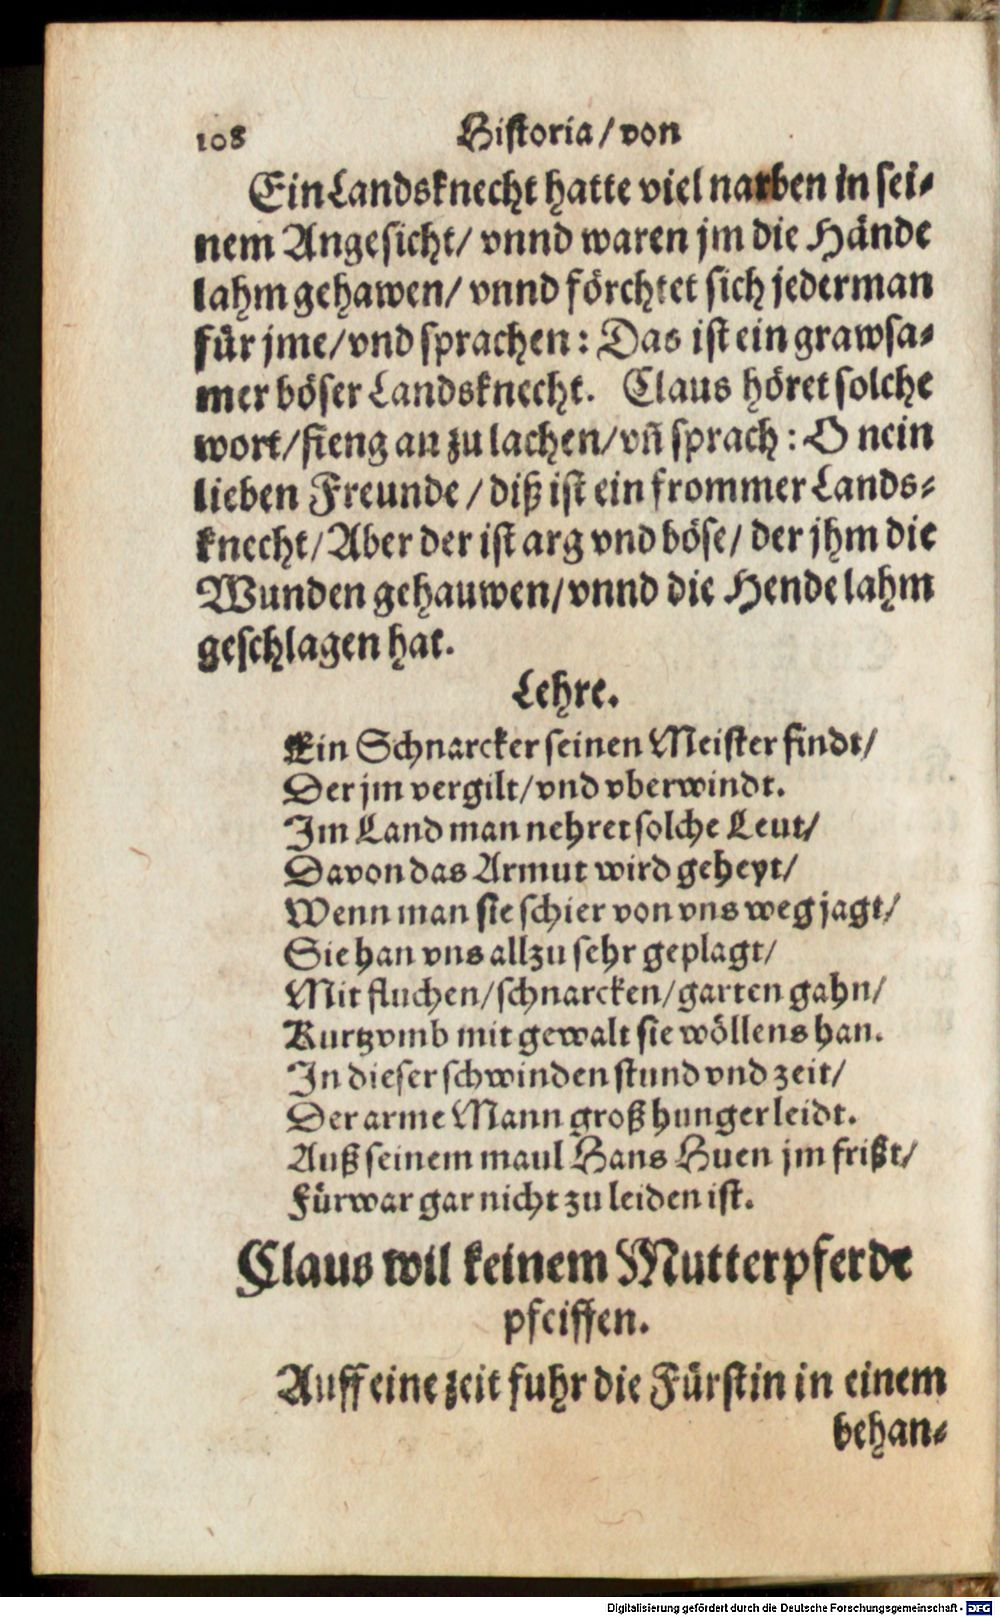 108 Historia / von
Ein Landsknecht hatte viel narben in sei⸗
nem Angesicht / vnnd waren jm die Hände
lahm gehawen / vnnd förchtet sich jederman
für jme / vnd sprachen: Das ist ein grawsa⸗
mer böser Landsknecht. Claus höret solche
wort / fieng an zu lachen / vñ sprach: O nein
lieben Freunde / diß ist ein frommer Lands⸗
knecht / Aber der ist arg vnd böse / der jhm die
Wunden gehauwen / vnnd die Hende lahm
geschlagen hat.
Lehre.
Ein Schnarcker seinen Meister findt /
Der jm vergilt / vnd vberwindt.
Im Land man nehret solche Leut /
Davon das Armut wird geheyt /
Wenn man sie schier von vns weg jagt /
Sie han vns allzu sehr geplagt /
Mit fluchen / schnarcken / garten gahn /
Kurtzvmb mit gewalt sie wöllens han.
In dieser schwinden stund vnd zeit /
Der arme Mann groß hunger leidt.
Auß seinem maul Hans Huen jm frißt /
Fürwar gar nicht zu leiden ist.
Claus wil keinem Mutterpferde
pfeiffen.
Auff eine zeit fuhr die Fürstin in einem
behan⸗
Digitalisierung gefördert durch die Deutsche Forschungsgemeinschaft - DFG